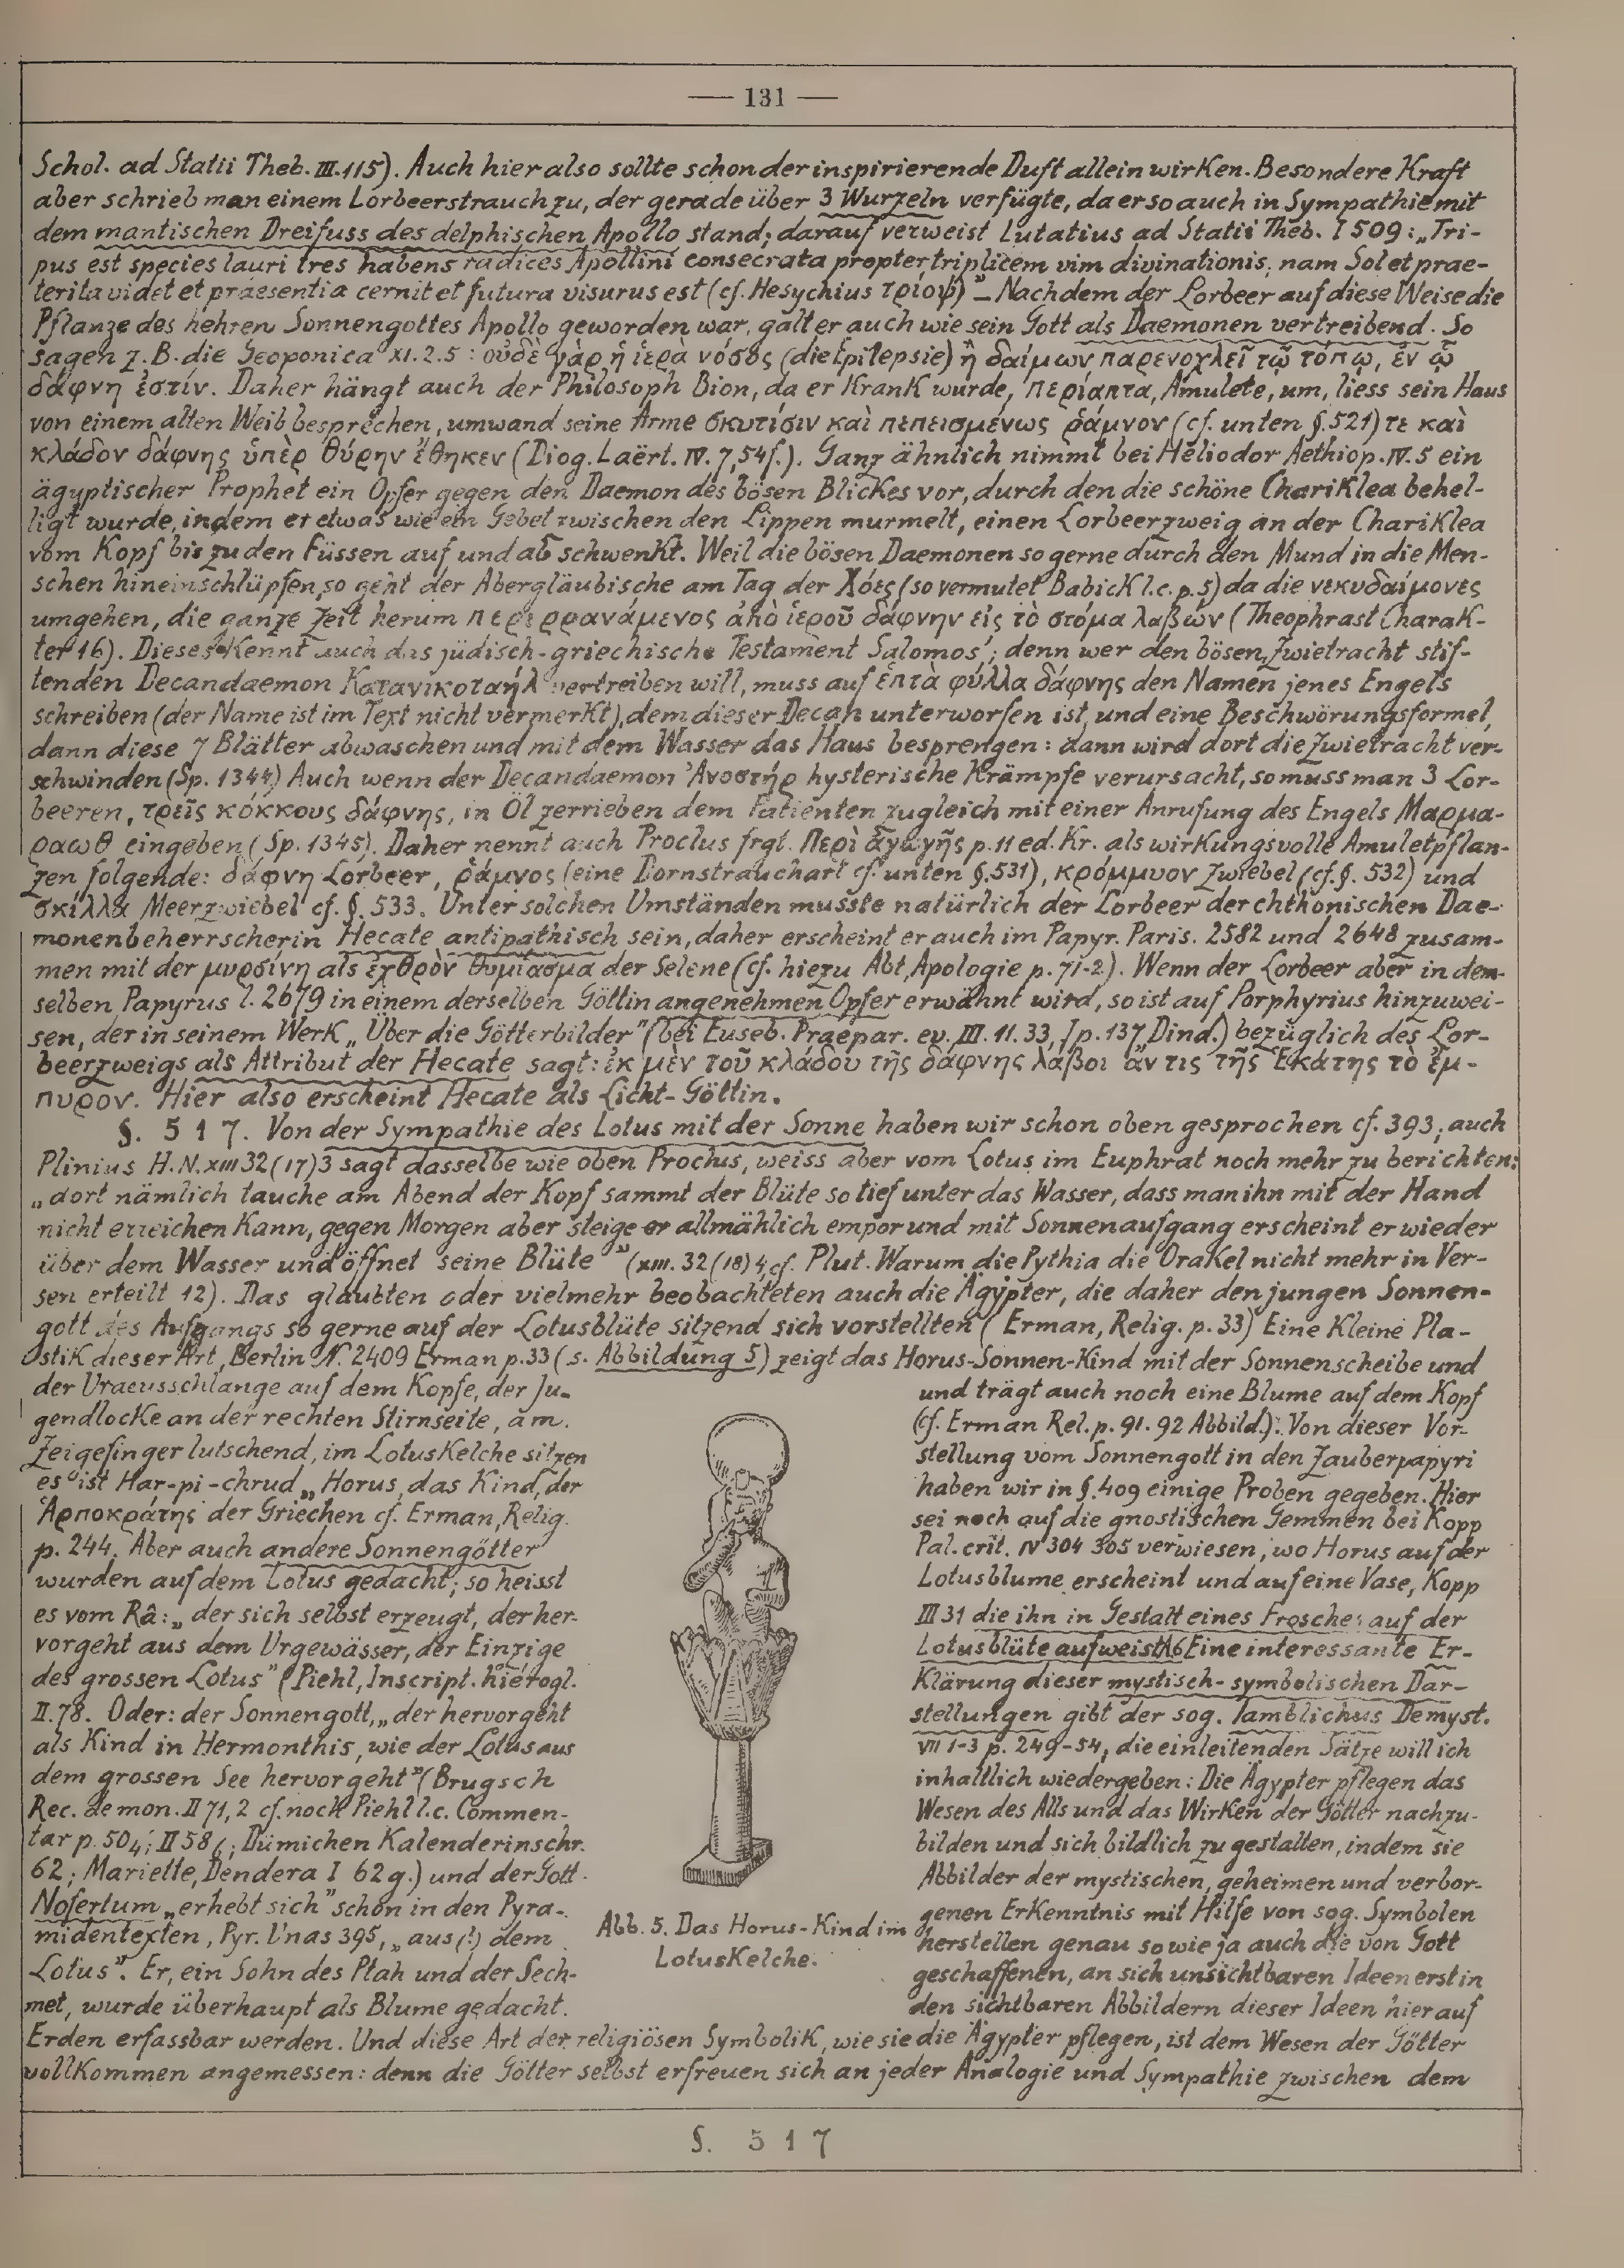 — 131 —
Schol. ad Statii Theb. III.115). Auch hier also sollte schon der inspirierende Duft allein wirken. Besondere Kraft
aber schrieb man einem Lorbeerstrauch zu, der gerade über 3 Wurzeln verfügte, da er so auch in Sympathie mit
dem mantischen Dreifuss des delphischen Apollo stand; darauf verweist Lutatius ad Statii Theb. I 509: „Tri-
pus est species lauri tres habens radices Apollini consecrata propter triplicem vim divinationis, nam Sol et prae-
terita videt et praesentia cernit et futura visurus est (cf. Hesychius τρίοψ)” — Nachdem der Lorbeer auf diese Weise die
Pflanze des hehren Sonnengottes Apollo geworden war, galt er auch wie sein Gott als Daemonen vertreibend. So
sagen z. B. die Geoponica XI. 2. 5 : οὐδὲ γὰρ ἡ ἱερὰ νόσος (die Epilepsie) ἢ δαίμων παρενοχλεῖ τῷ τόπῳ, ἐν ᾧ
δάφνη ἐστίν. Daher hängt auch der Philosoph Bion, da er krank wurde, περίαπτα, Amulete, um, liess sein Haus
von einem alten Weib besprechen, umwand seine Arme σκυτίσιν καὶ πεπεισμένως ῥάμνον (cf. unten §. 521) τε καὶ
κλάδον δάφνης ὑπὲρ θύρην ἔθηκεν (Diog. Laërt. IV. 7, 54f.). Ganz ähnlich nimmt bei Heliodor Aethiop. IV. 5 ein
ägyptischer Prophet ein Opfer gegen den Daemon des bösen Blickes vor, durch den die schöne Chariklea behel-
ligt wurde, indem er etwas wie ein Gebet zwischen den Lippen murmelt, einen Lorbeerzweig an der Chariklea
vom Kopf bis zu den Füssen auf und ab schwenkt. Weil die bösen Daemonen so gerne durch den Mund in die Men-
schen hineinschlüpfen, so geht der Abergläubische am Tag der Χόες (so vermutet Babick l. c. p. 5) da die νεκυδαίμονες
umgehen, die ganze Zeit herum περιρρανάμενος ἀπὸ ἱεροῦ δάφνην εἰς τὸ στόμα λαβών (Theophrast Charak-
ter 16). Dieses kennt auch das jüdisch-griechische Testament Salomos; denn wer den bösen, Zwietracht stif-
tenden Decandaemon Κατανικοταήλ vertreiben will, muss auf ἑπτὰ φύλλα δάφνης den Namen jenes Engels
schreiben (der Name ist im Text nicht vermerkt), dem dieser Decan unterworfen ist, und eine Beschwörungsformel,
dann diese 7 Blätter abwaschen und mit dem Wasser das Haus besprengen: dann wird dort die Zwietracht ver-
schwinden (Sp. 1344) Auch wenn der Decandaemon Ἀνοστήρ hysterische Krämpfe verursacht, so muss man 3 Lor-
beeren, τρεῖς κόκκους δάφνης, in Öl zerrieben dem Patienten zugleich mit einer Anrufung des Engels Μαρμα-
ραωθ eingeben (Sp. 1345). Daher nennt auch Proclus frgt. Περὶ ἀγωγῆς p. 11 ed. Kr. als wirkungsvolle Amuletpflan-
zen folgende: δάφνη Lorbeer, ῥάμνος (eine Dornstrauchart cf. unten §. 531), κρόμμυον Zwiebel (cf. §. 532) und
σκίλλα Meerzwiebel cf. §. 533. Unter solchen Umständen musste natürlich der Lorbeer der chthonischen Dae-
monenbeherrscherin Hecate antipathisch sein, daher erscheint er auch im Papyr. Paris. 2582 und 2648 zusam-
men mit der μυρσίνη als ἐχθρὸν θυμίασμα der Selene (cf. hiezu Abt, Apologie p. 71-2). Wenn der Lorbeer aber in dem-
selben Papyrus l. 2679 in einem derselben Göttin angenehmen Opfer erwähnt wird, so ist auf Porphyrius hinzuwei-
sen, der in seinem Werk „Über die Götterbilder” (bei Euseb. Praepar. ev. III. 11. 33, I p. 137, Dind.) bezüglich des Lor-
beerzweigs als Attribut der Hecate sagt: ἐκ μὲν τοῦ κλάδου τῆς δάφνης λάβοι ἄν τις τῆς Ἑκάτης τὸ ἔμ-
πυρον. Hier also erscheint Hecate als Licht-Göttin.
§. 517. Von der Sympathie des Lotus mit der Sonne haben wir schon oben gesprochen cf. 393; auch
Plinius H. N. XIII 32 (17) 3 sagt dasselbe wie oben Proclus, weiss aber vom Lotus im Euphrat noch mehr zu berichten:
„dort nämlich tauche am Abend der Kopf sammt der Blüte so tief unter das Wasser, dass man ihn mit der Hand
nicht erreichen kann, gegen Morgen aber steige er allmählich empor und mit Sonnenaufgang erscheint er wieder
über dem Wasser und öffnet seine Blüte” (XIII. 32 (18) 4, cf. Plut. Warum die Pythia die Orakel nicht mehr in Ver-
sen erteilt 12). Das glaubten oder vielmehr beobachteten auch die Ägypter, die daher den jungen Sonnen-
gott des Aufgangs so gerne auf der Lotusblüte sitzend sich vorstellten (Erman, Relig. p. 33) Eine kleine Pla-
stik dieser Art, Berlin N. 2409 Erman p. 33 (s. Abbildung 5) zeigt das Horus-Sonnen-Kind mit der Sonnenscheibe und
der Uraeusschlange auf dem Kopfe, der Ju-
gendlocke an der rechten Stirnseite, am
Zeigefinger lutschend, im Lotuskelche sitzen
es ist Har-pi-chrud „Horus, das Kind, der
Ἁρποκράτης der Griechen cf. Erman, Relig.
p. 244. Aber auch andere Sonnengötter
wurden auf dem Lotus gedacht; so heisst
es vom Râ: „der sich selbst erzeugt, der her-
vorgeht aus dem Urgewässer, der Einzige
des grossen Lotus” (Piehl, Inscript. hiérogl.
II. 78. Oder: der Sonnengott, „der hervorgeht
als Kind in Hermonthis, wie der Lotus aus
dem grossen See hervorgeht” (Brugsch
Rec. de mon. II 71, 2 cf. noch Piehl l. c. Commen-
tar p. 504; II 58; Dümichen Kalenderinschr.
62; Mariette, Dendera I 62g.) und der Gott
Nofertum „erhebt sich” schon in den Pyra-
midentexten, Pyr. Unas 395, „aus (!) dem
Lotus”. Er, ein Sohn des Ptah und der Sech-
met, wurde überhaupt als Blume gedacht.
Abb. 5. Das Horus-Kind im
Lotuskelche.
und trägt auch noch eine Blume auf dem Kopf
(cf. Erman Rel. p. 91. 92 Abbild.). Von dieser Vor-
stellung vom Sonnengott in den Zauberpapyri
haben wir in §. 409 einige Proben gegeben. Hier
sei noch auf die gnostischen Gemmen bei Kopp
Pal. crit. IV 304 305 verwiesen, wo Horus auf der
Lotusblume erscheint und auf eine Vase, Kopp
III 31 die ihn in Gestalt eines Frosches auf der
Lotusblüte aufweist. Eine interessante Er-
klärung dieser mystisch-symbolischen Dar-
stellungen gibt der sog. Iamblichus De myst.
VII 1-3 p. 249-54, die einleitenden Sätze will ich
inhaltlich wiedergeben: Die Ägypter pflegen das
Wesen des Alls und das Wirken der Götter nachzu-
bilden und sich bildlich zu gestalten, indem sie
Abbilder der mystischen, geheimen und verbor-
genen Erkenntnis mit Hilfe von sog. Symbolen
herstellen genau so wie ja auch die von Gott
geschaffenen, an sich unsichtbaren Ideen erst in
den sichtbaren Abbildern dieser Ideen hier auf
Erden erfassbar werden. Und diese Art der religiösen Symbolik, wie sie die Ägypter pflegen, ist dem Wesen der Götter
vollkommen angemessen: denn die Götter selbst erfreuen sich an jeder Analogie und Sympathie zwischen dem
§. 517